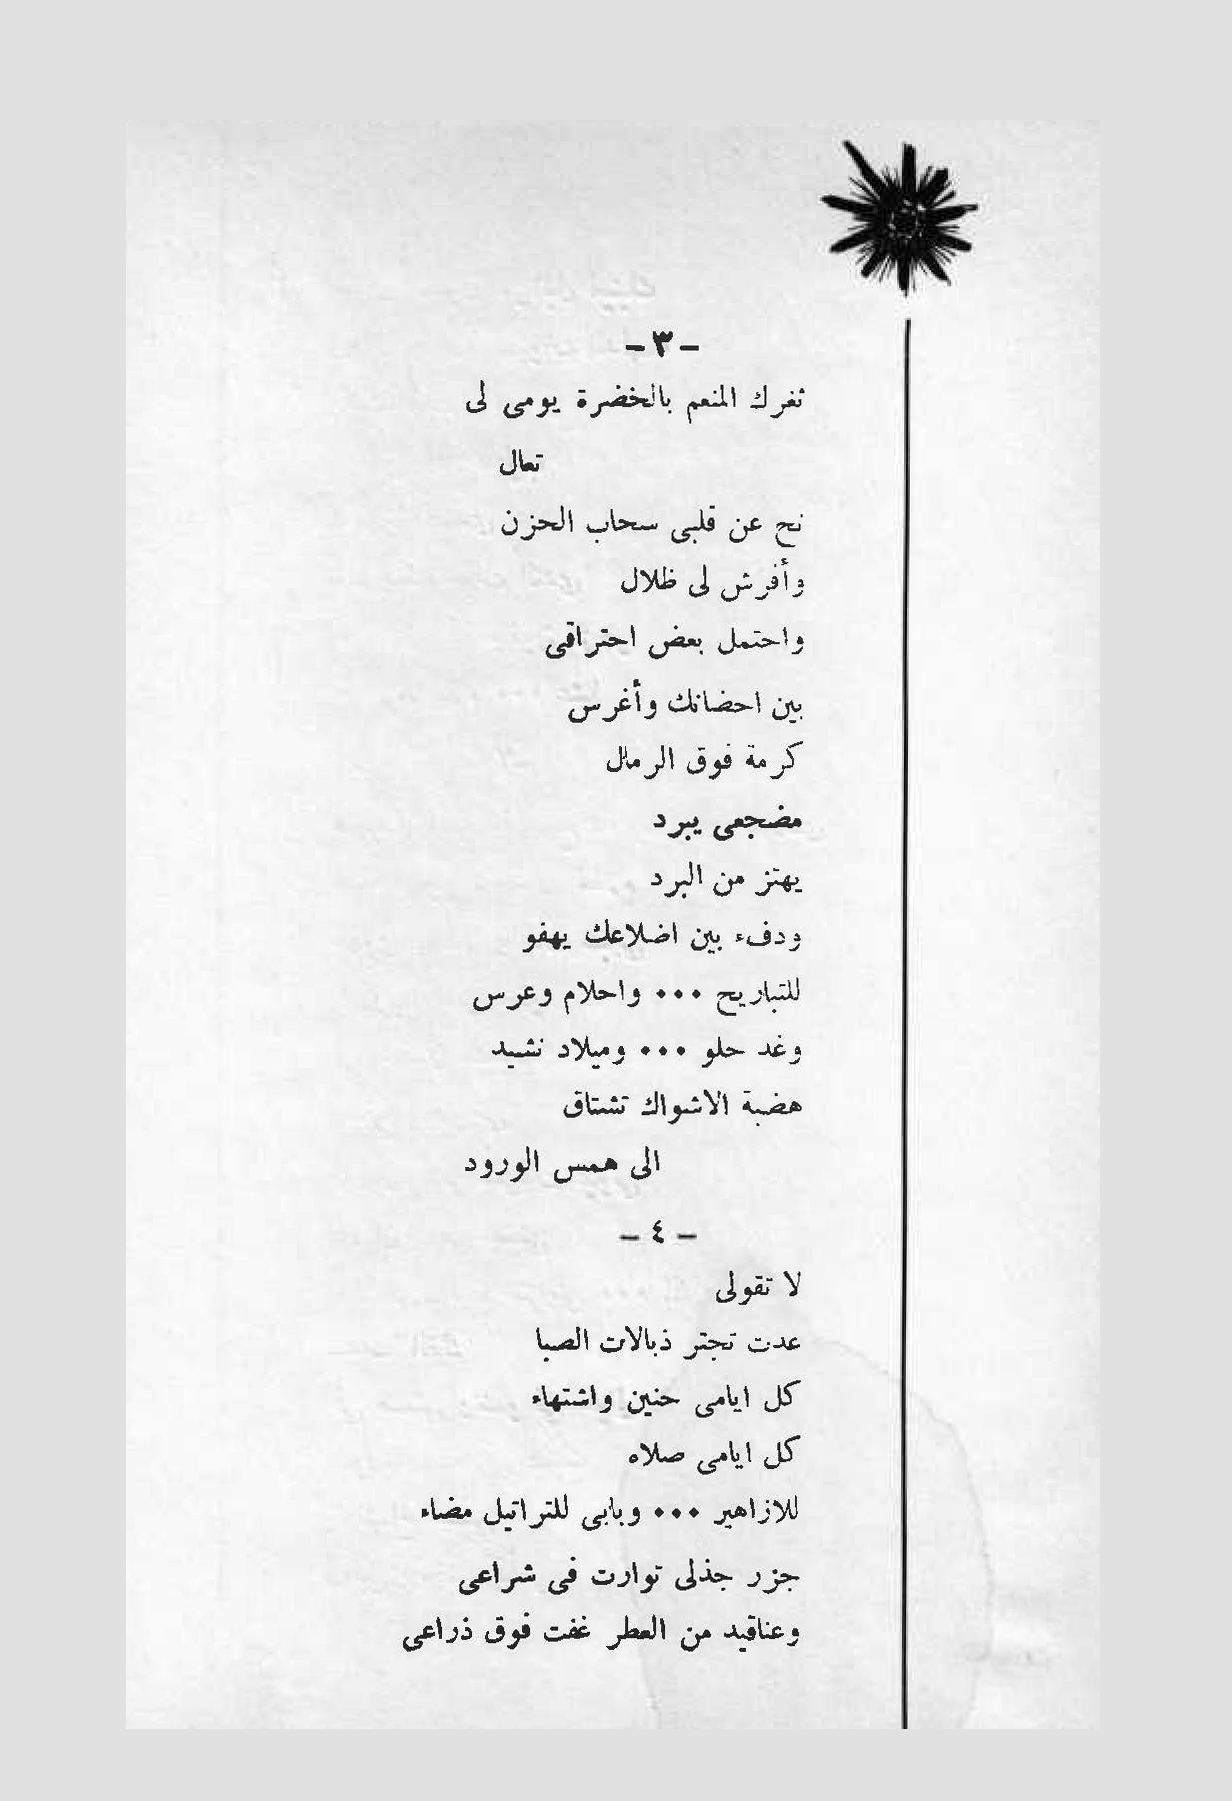 - ٣ -
ثغرك المنعم بالخضرة يومى لى
تعال
نح عن قلبى سحاب الحزن
وأفرش لى ظلال
واحتمل بعض احتراقى
بين احضانك وأغرس
كرمة فوق الرمال
مضجعى يبرد
يهتز من البرد
ودفء بين اضلاعك يهفو
للتباريح ٠٠٠ واحلام وعرس
وغد حلو ٠٠٠ وميلاد نشيد
هضبة الاشواك تشتاق
الى همس الورود
- ٤ -
لا تقولى
عدت تجتر ذبالات الصبا
كل ايامى حنين واشتهاء
كل ايامى صلاه
للازاهير ٠٠٠ وبابى للتراتيل مضاء
جزر جذلى توارت فى شراعى
وعناقيد من العطر غفت فوق ذراعى